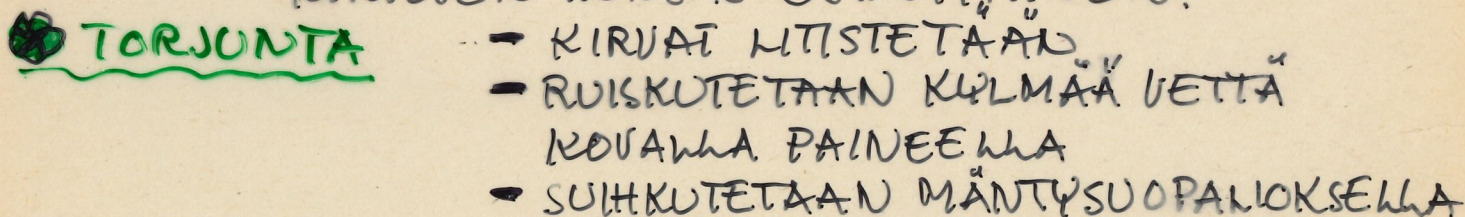 TORJUNTA - KIRVAT LITISTETÄÄN
- RUISKUTETAAN KYLMÄÄ VETTÄ
KOVALLA PAINEELLA
- SUIHKUTETAAN MÄNTYSUOPALIOKSELLA